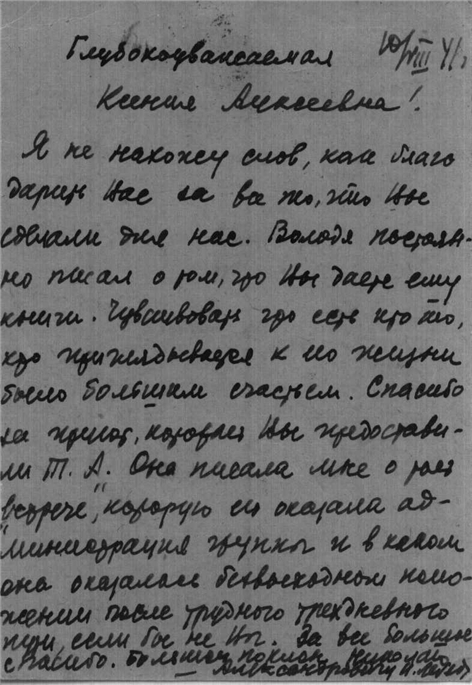 10/VIII 41г
Глубокоуважаемая
Ксения Алексеевна!
Я не нахожу слов, как благо
дарить Вас за все то, что Вы
сделали для нас. Володя постоян-
но писал о том, что Вы даете ему
книги. Чувствовать что есть кто то,
кто приглядывается к его жизни
было большим счастьем. Спасибо
за приют, который Вы предостави-
ли Т. А. Она писала мне о той
"встрече", которую ей оказала ад-
министрация группы и в каком
она оказалась безвыходном поло-
жении после трудного трехдневного
пути, если бы не Вы. За все большое
спасибо. Большой поклон
Александровичу